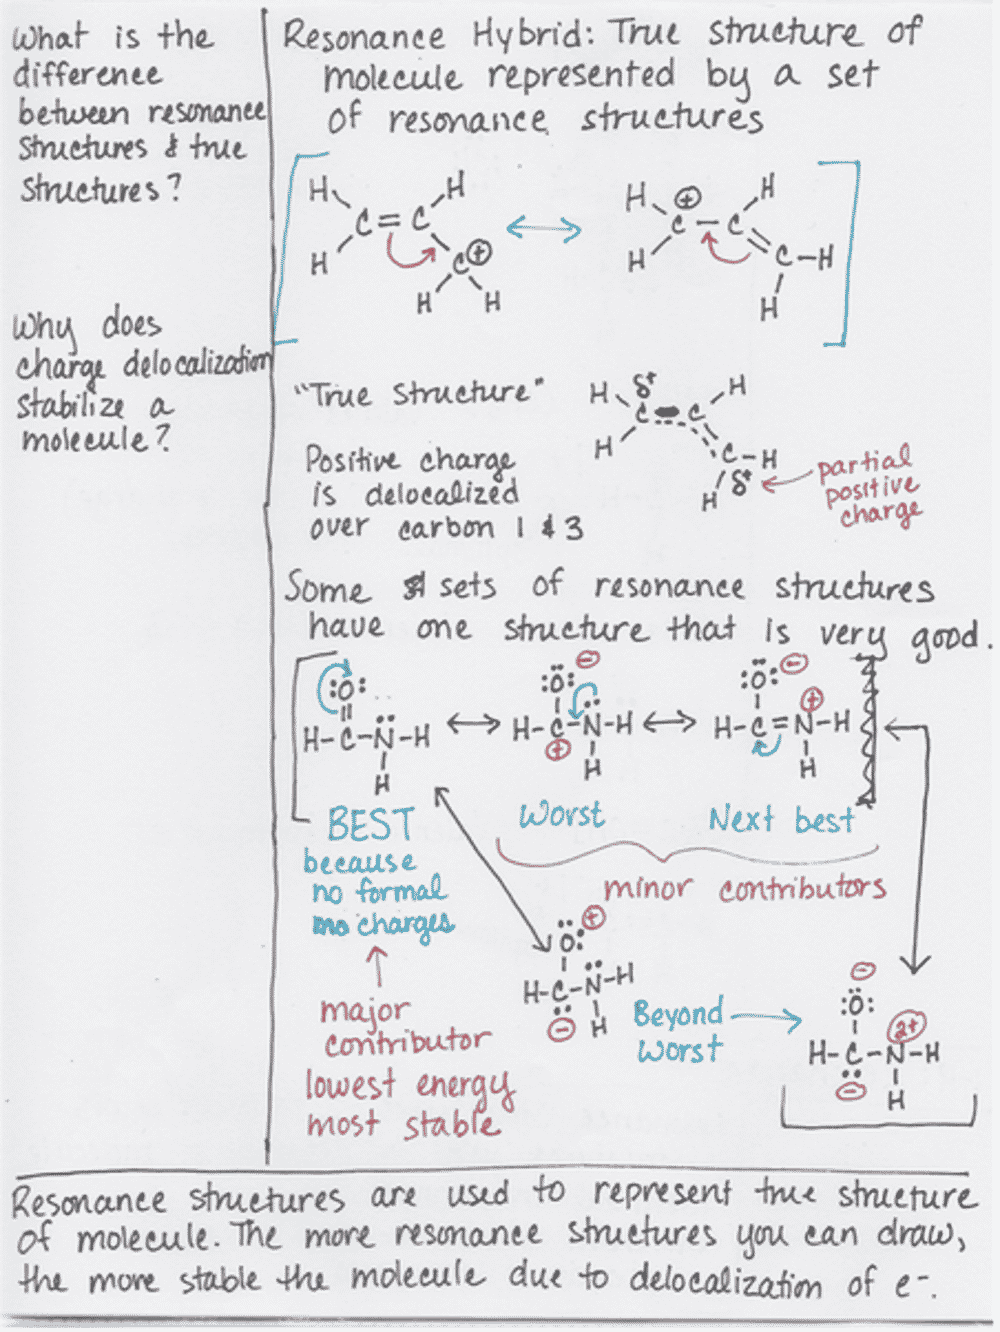 What is the
difference
between resonance
structures & true
structures?
Why does
charge delocalization
stabilize a
molecule?
Resonance Hybrid: True structure of
molecule represented by a set
of resonance structures
H H
C=C
H C⊕
H H
H ⊕ H
C-C
H C-H
H
"True Structure"
Positive charge
is delocalized
over carbon 1 & 3
H δ+ H
C C
H C-H
H δ+
partial
positive
charge
Some sets of resonance structures
have one structure that is very good.
:O:
H-C-N̈-H
H
:Ö: ⊖
H-C-N̈-H
⊕ H
:Ö: ⊖
⊕
H-C=N-H
H
BEST
because
no formal
charges
Worst
Next best
minor contributors
major
contributor
lowest energy
most stable
Ö: ⊕
H-C-N̈-H
⊖ H
Beyond
worst
⊖
:Ö:
2+
H-C-N-H
⊖ H
Resonance structures are used to represent true structure
of molecule. The more resonance structures you can draw,
the more stable the molecule due to delocalization of e⁻.